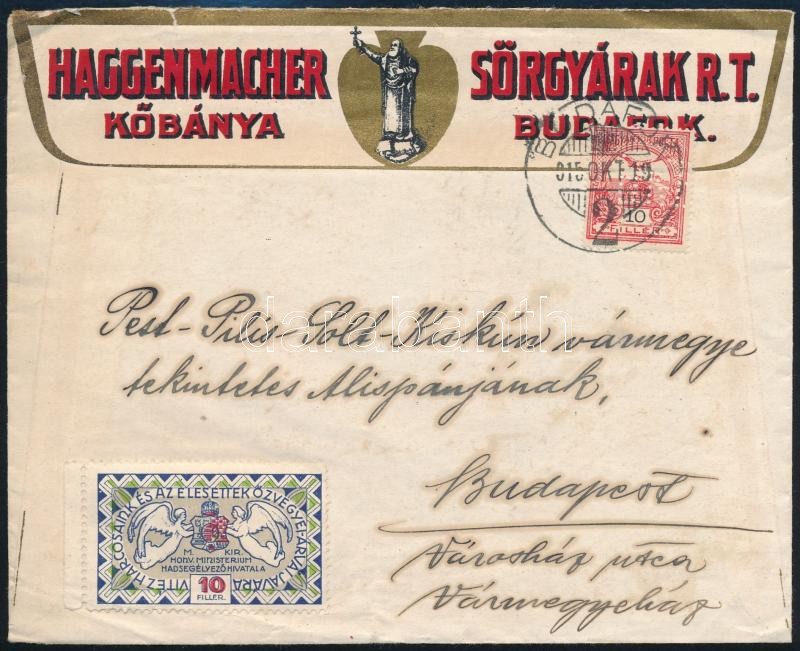 HAGGENMACHER SÖRGYÁRAK R.T.
KŐBÁNYA BUDAFOK.
915 OKT. 19
2
10
FILLÉR
Pest-Pilis-Solt-Kiskún vármegye
tekintetes Alispánjának,
Budapest
Városház utca
Vármegyeház
darabanth
VITÉZ HARCOSAINK ÉS AZ ELESETTEK ÖZVEGYEI-ÁRVÁI JAVÁRA
M. KIR.
HONV. MINISTERIUM
HADSEGÉLYEZŐ HIVATALA
10
FILLÉR.